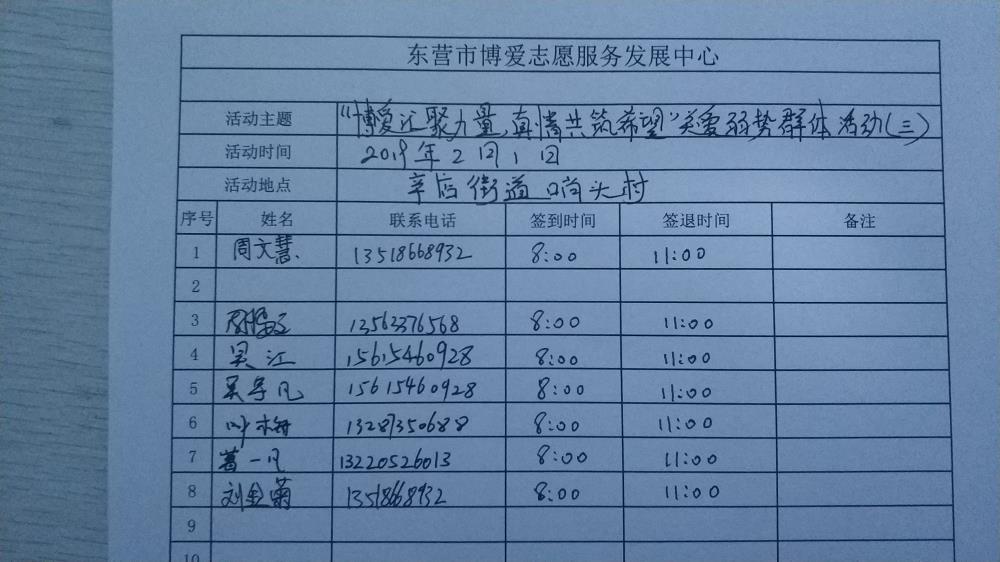 东营市博爱志愿服务发展中心
活动主题 "博爱汇聚力量,真情共筑希望"关爱弱势群体活动(三)
活动时间 2019年2月1日
活动地点 辛店街道 哨头村
序号 姓名 联系电话 签到时间 签退时间 备注
1 周文慧 13518668932 8:00 11:00
2
3 13563376568 8:00 11:00
4 吴江 15615460928 8:00 11:00
5 吴宇凡 15615460928 8:00 11:00
6 叶梅 13287350688 8:00 11:00
7 葛一凡 13220526013 8:00 11:00
8 刘金菊 13518668932 8:00 11:00
9
10